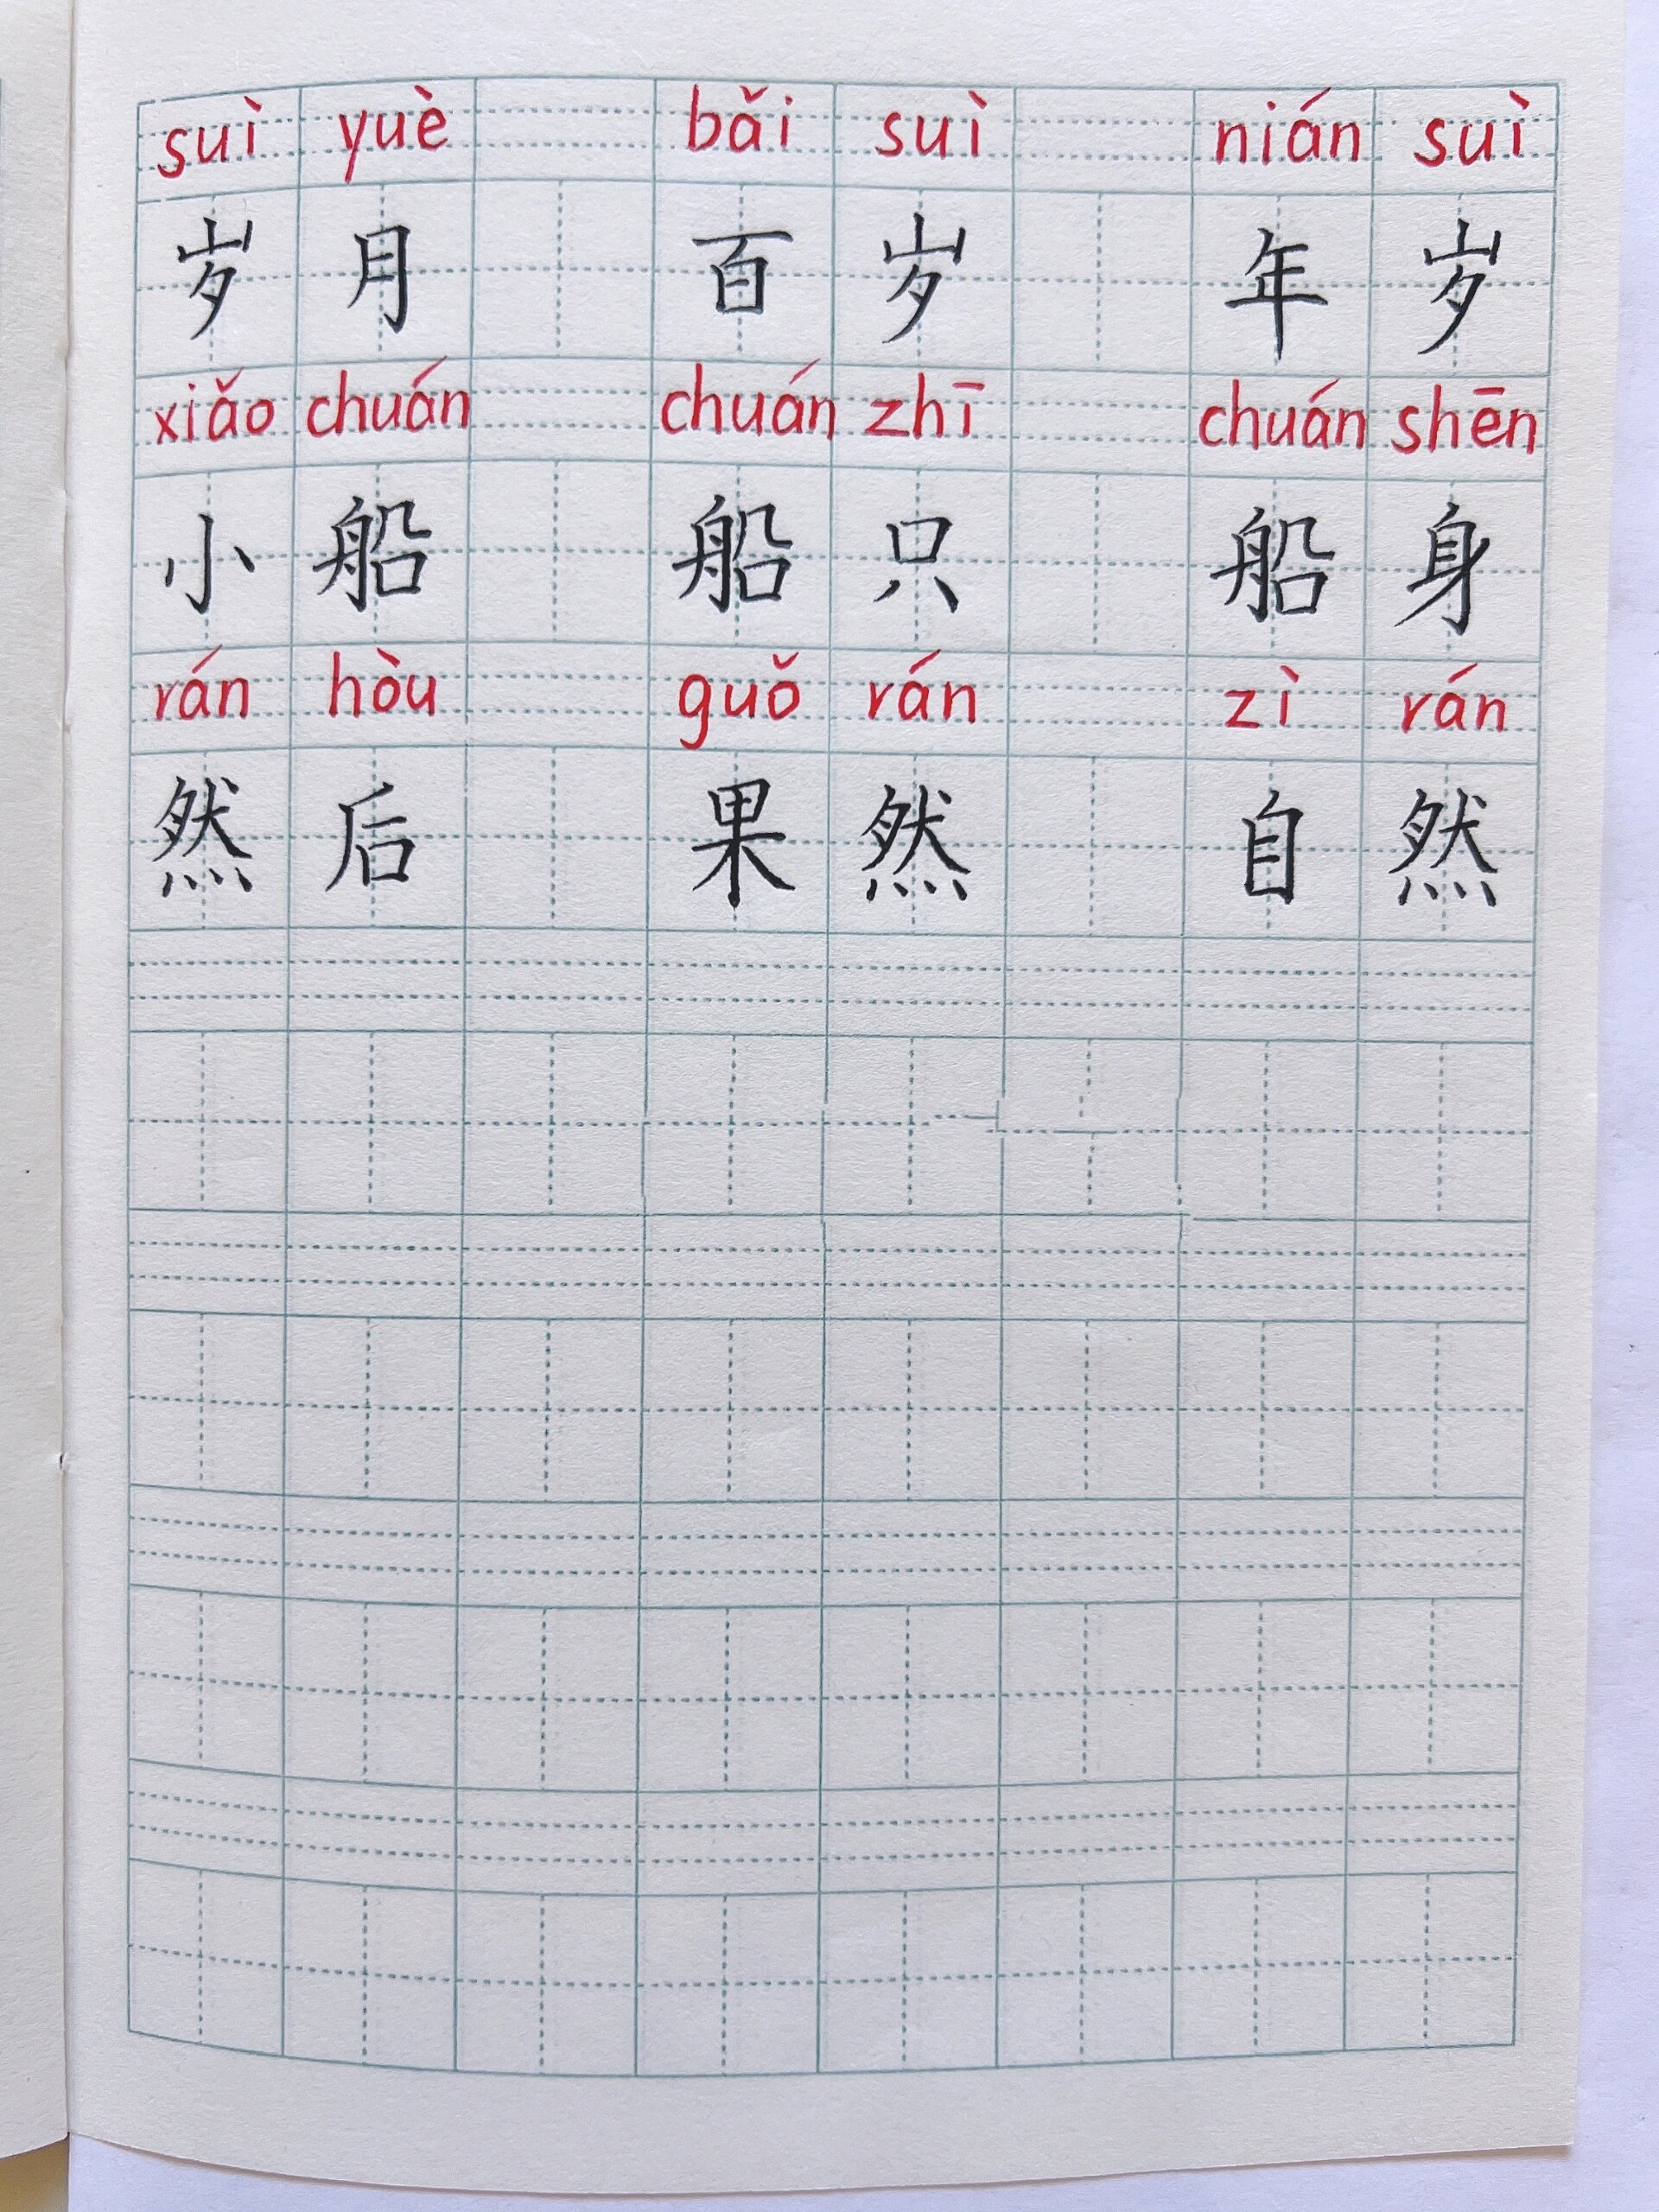 suì yuè bǎi suì nián suì
岁月 百岁 年岁
xiǎo chuán chuán zhī chuán shēn
小船 船只 船身
rán hòu guǒ rán zì rán
然后 果然 自然